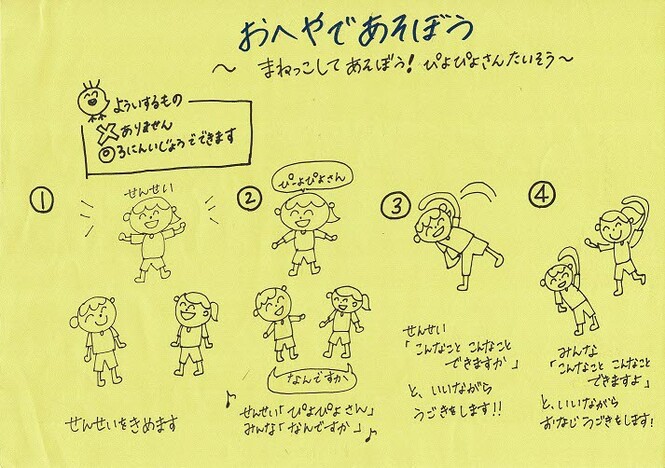 おへやであそぼう
～ まねっこして あそぼう! ぴよぴよさんたいそう～
よういするもの
ありません
◎ 3にんいじょうでできます
①
せんせい
せんせいをきめます
②
ぴーよぴよさん
なんですか
♪ せんせい「ぴよぴよさん」
みんな「なんですか」♪
③
せんせい
「こんなこと こんなこと
できますか」
と、いいながら
うごきをします!!
④
みんな
「こんなこと こんなこと
できますよ」
と、いいながら
おなじうごきをします!